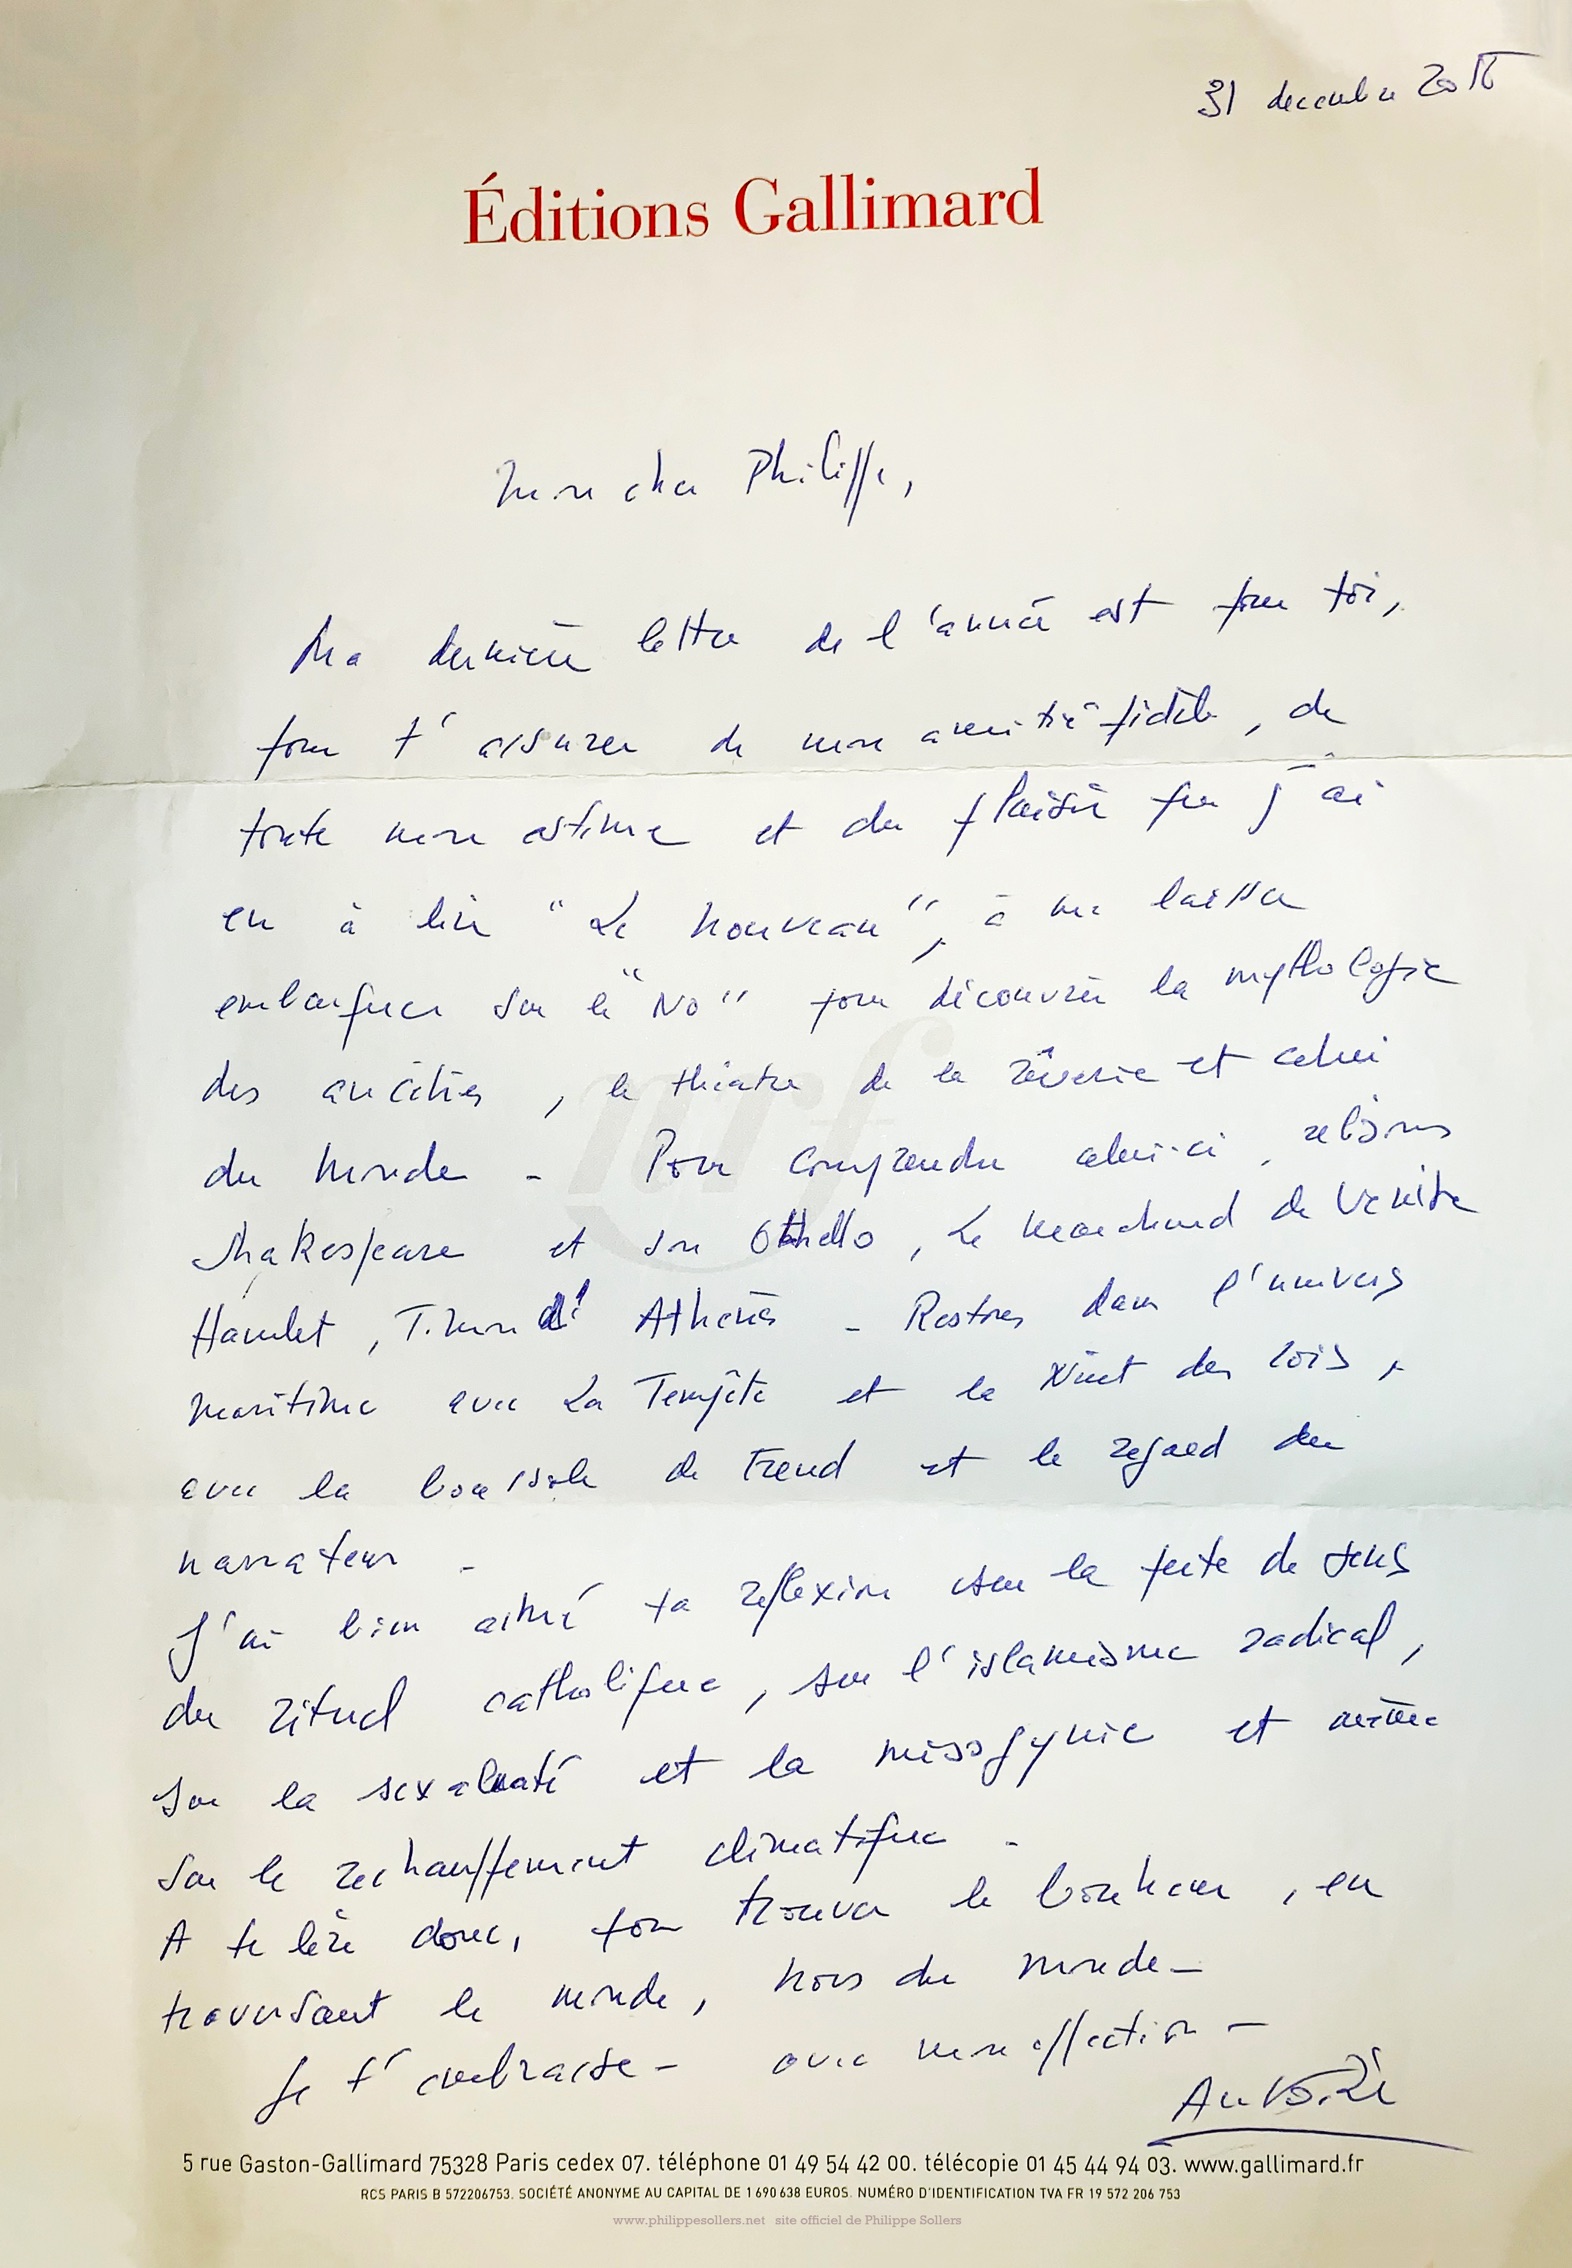 31 decembre 2018
Éditions Gallimard
Mon cher Philippe,
Ma dernière lettre de l'année est pour toi,
pour t'assurer de mon amitié fidèle, de
toute mon estime et du plaisir que j'ai
eu à lire "Le Nouveau", à me laisser
embarquer sur le "No" pour découvrir la mythologie
des ancêtres, le théatre de la rêverie et celui
du monde - Pour comprendre celui-ci, relisons
Shakespeare et son Othello, Le Marchand de Venise
Hamlet, Timon d'Athènes - Restons dans l'univers
maritime avec La Tempête et la Nuit des rois,
avec la boussole de Freud et le regard du
narrateur -
J'ai bien aimé ta reflexion sur la perte de sens
du rituel catholique, sur l'islamisme radical,
sur la sexualité et la misogynie et même
sur le rechauffement climatique -
A te lire donc, pour trouver le bonheur, en
traversant le monde, hors du monde -
Je t'embrasse - avec mon affection -
Antoine
nrf
5 rue Gaston-Gallimard 75328 Paris cedex 07. téléphone 01 49 54 42 00. télécopie 01 45 44 94 03. www.gallimard.fr
RCS PARIS B 572206753. SOCIÉTÉ ANONYME AU CAPITAL DE 1 690 638 EUROS. NUMÉRO D'IDENTIFICATION TVA FR 19 572 206 753
www.philippesollers.net site officiel de Philippe Sollers